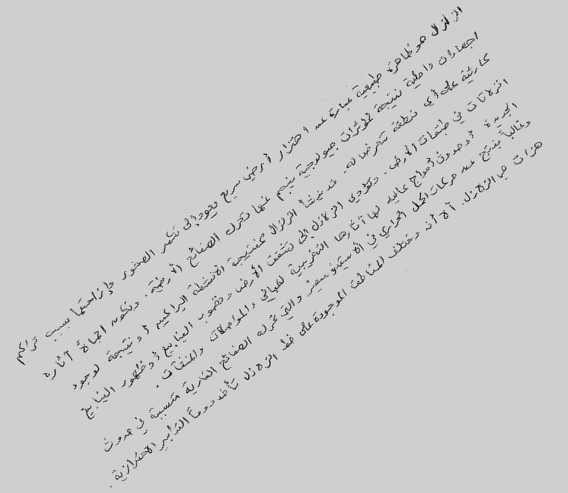 الزلزال هو ظاهرة طبيعية عبارة عن اهتزاز أرضي سريع يعود إلى تكسر الصخور وإزاحتها بسبب تراكم
اجهادات داخلية نتيجة لمؤثرات جيولوجية ينجم عنها تحرك الصفائح الأرضية. وتكون لحياة آثاره
كارثية على أي منطقة تتعرض له. قد ينشأ الزلزال كنتيجة لأنشطة البراكين أو نتيجة لوجود
انزلاقات في طبقات الأرض. وتؤدي الزلازل إلى تشقق الأرض ونضوب الينابيع أو ظهور الينابيع
الجديدة أو حدوث أمواج عالية لها آثارها التخريبية للمباني والمواصلات والمنشآت.
وغالبا ينتج عن حركات الحمل الحراري في الأستينوسفير والتي تحرك الصفائح القارية متسببة في حدوث
هزات هي الزلازل. ألا أنه ومختلف المناطق الموجودة على خط الزلازل تأخذ دوماً التدابير الاحترازية.